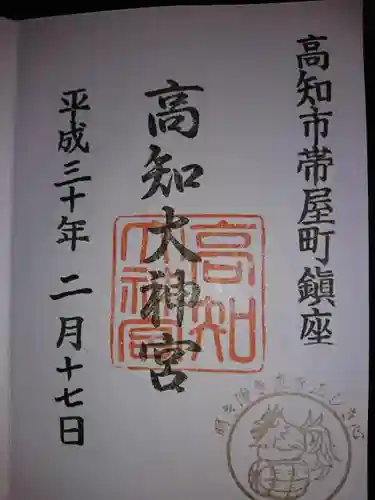 高知市帯屋町鎮座
高知大神宮
高知大神宮
平成三十年二月十七日